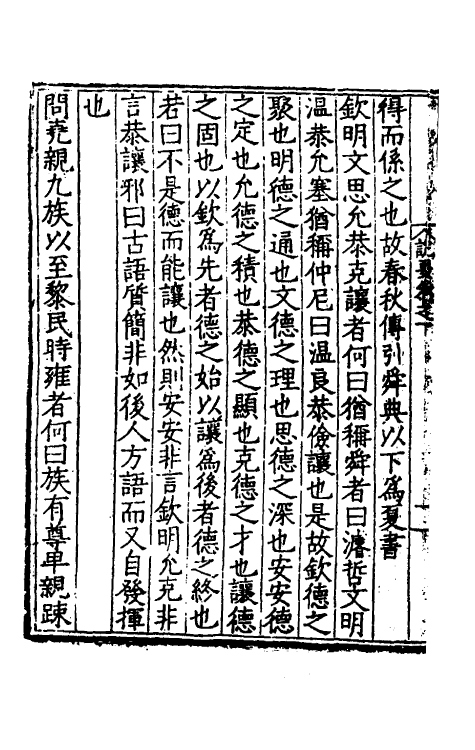 得而係之也故春秋傳引舜典以下爲夏書
欽明文思允恭克讓者何曰猶稱舜者曰濬哲文明
温恭允塞猶稱仲尼曰温良恭儉讓也是故欽德之
聚也明德之通也文德之理也思德之深也安安德
之定也允德之積也恭德之顯也克德之才也讓德
之固也以欽爲先者德之始以讓爲後者德之終也
若曰不是德而能讓也然則安安非言欽明允克非
言恭讓邪曰古語質簡非如後人方語而又自發揮
也
問堯親九族以至黎民時雍者何曰族有尊卑親踈